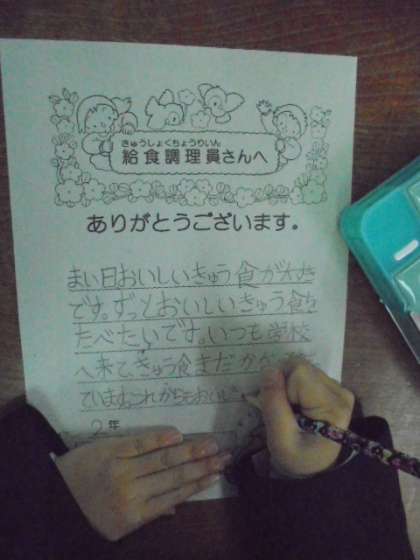 きゅうしょくちょうりいん
給食調理員さんへ
ありがとうございます。
まい日おいしいきゅう食が大すき
です。ずっとおいしいきゅう食も
たべたいです。いつも学校
へ来て、きゅう食まだかな
ています。これからもおいし
2年